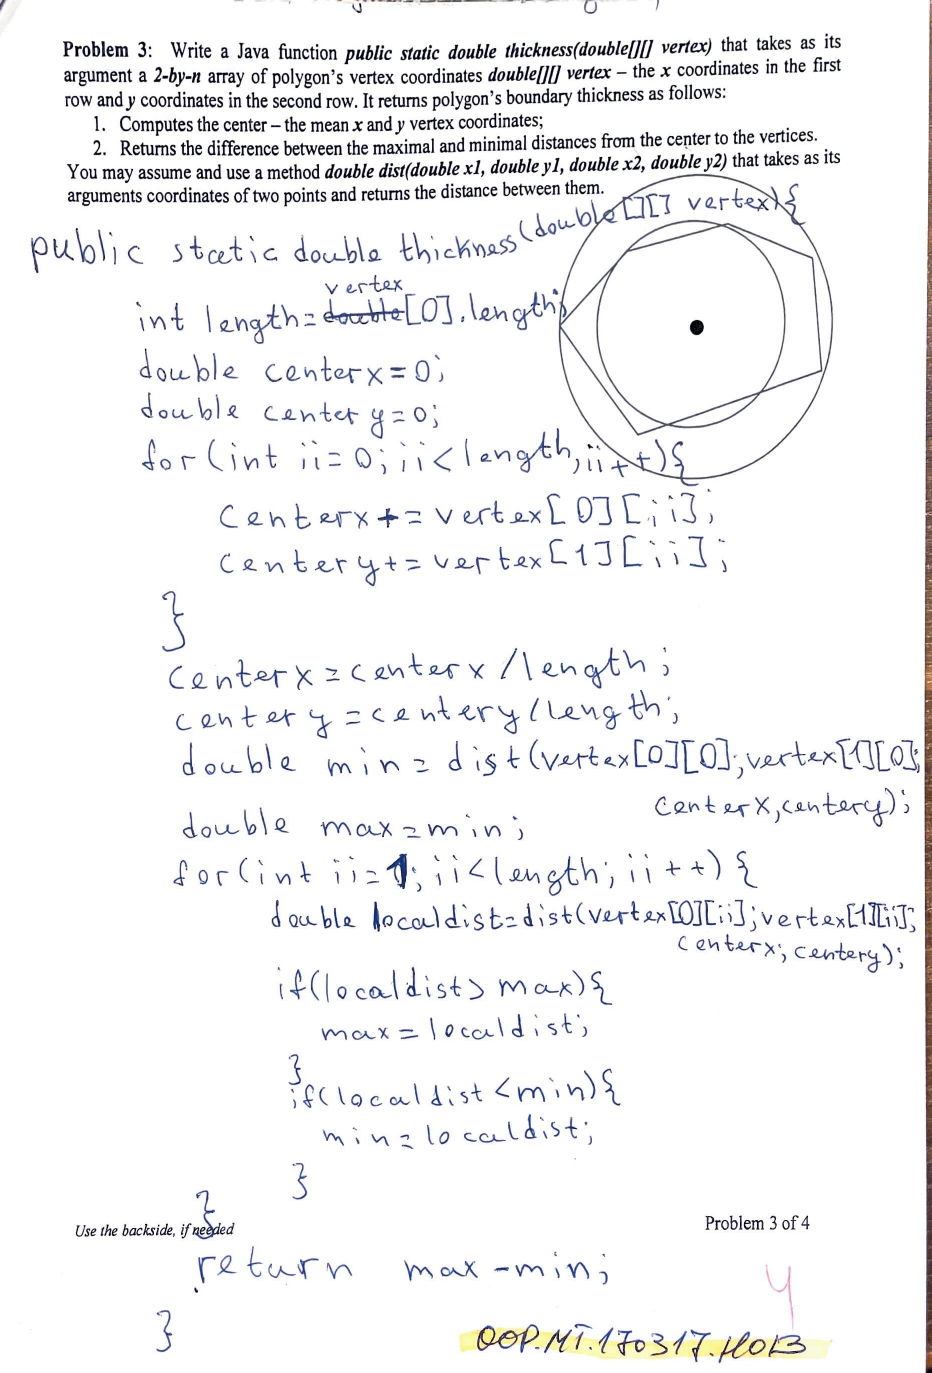 Problem 3: Write a Java function public static double thickness(double[][] vertex) that takes as its
argument a 2-by-n array of polygon's vertex coordinates double[][] vertex – the x coordinates in the first
row and y coordinates in the second row. It returns polygon's boundary thickness as follows:
1. Computes the center – the mean x and y vertex coordinates;
2. Returns the difference between the maximal and minimal distances from the center to the vertices.
You may assume and use a method double dist(double x1, double y1, double x2, double y2) that takes as its
arguments coordinates of two points and returns the distance between them.
public static double thickness(double[][] vertex){
vertex
int length=double[0].length;
double centerx=0;
double centery=0;
for(int ii=0;ii<length;ii++){
centerx+=vertex[0][ii];
centery+=vertex[1][ii];
}
centerx=centerx/length;
centery=centery/length;
double min=dist(vertex[0][0];vertex[1][0];
centerx,centery);
double max=min;
for(int ii=1;ii<length;ii++){
double localdist=dist(vertex[0][ii];vertex[1][ii];
centerx;centery);
if(localdist>max){
max=localdist;
}
if(localdist<min){
min=localdist;
}
}
Use the backside, if needed
Problem 3 of 4
return max-min;
4
}
OOP.MT.170317.H013